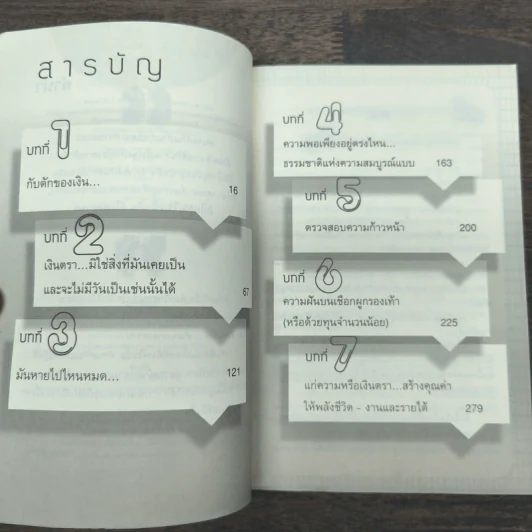 สารบัญ
บทที่ 1
กับดักของเงิน... 16
บทที่ 2
เงินตรา...มิใช่สิ่งที่มันเคยเป็น
และจะไม่มีวันเป็นเช่นนั้นได้ 67
บทที่ 3
มันหายไปไหนหมด... 121
บทที่ 4
ความพอเพียงอยู่ตรงไหน...
ธรรมชาติแห่งความสมบูรณ์แบบ 163
บทที่ 5
ตรวจสอบความก้าวหน้า 200
บทที่ 6
ความฝันบนเชือกผูกรองเท้า
(หรือด้วยทุนจำนวนน้อย) 225
บทที่ 7
แก่ความหรือเงินตรา...สร้างคุณค่า
ให้พลังชีวิต - งานและรายได้ 279